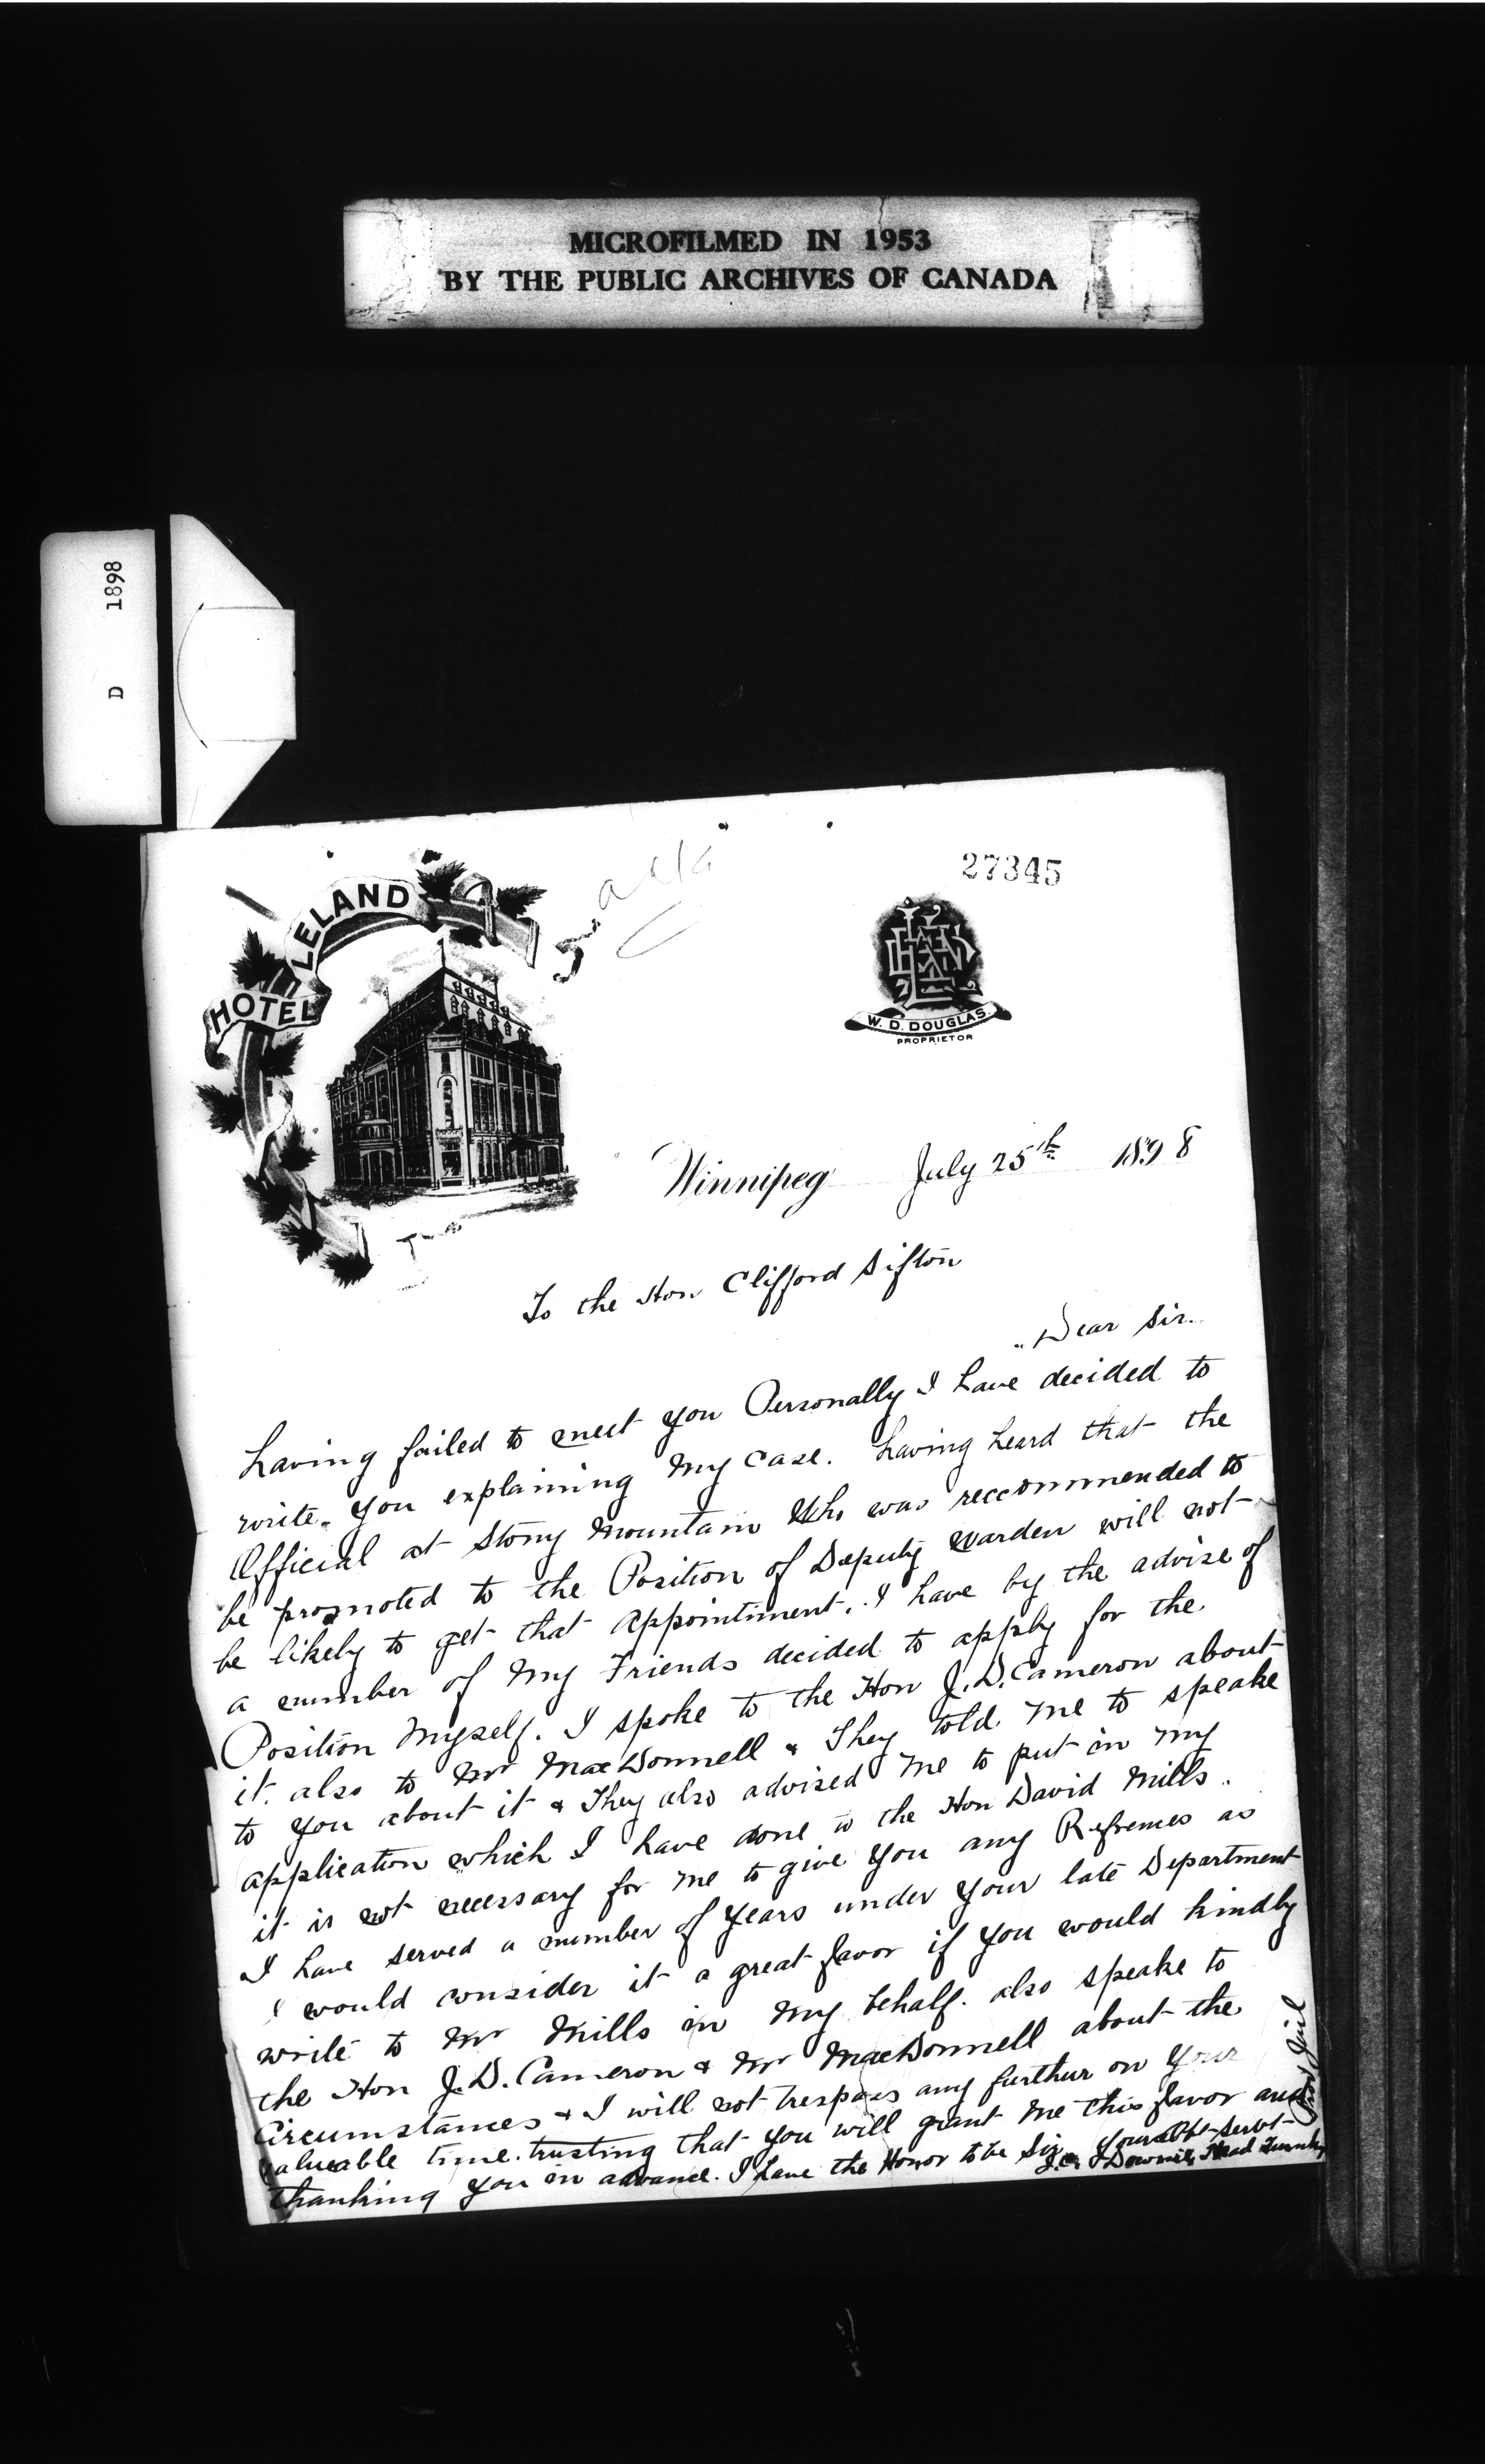 MICROFILMED IN 1953
BY THE PUBLIC ARCHIVES OF CANADA
D 1898
27345
HOTEL LELAND
W. D. DOUGLAS.
PROPRIETOR
Winnipeg July 25th 1898
To the Hon Clifford Sifton
Dear Sir.
having failed to meet you Personally I have decided to
write you explaining my case. having heard that the
Official at Stony Mountain Who was reccommended to
be promoted to the Position of Deputy Warden will not
be likely to get that appointiment. I have by the advise of
a number of my Friends decided to apply for the
Position Myself. I spoke to the Hon J.D. Cameron about
it. also to Mr MacDonnell & They told me to speake
to you about it & They also advised me to put in my
application which I have done to the Hon David Mills.
it is not necessary for me to give you any Refrences as
I have served a number of years under your late Department
I would consider it a great favor if you would kindly
write to Mr Mills in my behalf. also speake to
the Hon J.D. Cameron & Mr MacDonnell about the
Circumstances & I will not trespass any further on your
valueable time. trusting that you will grant me this favor and
thanking you in advance. I have the Honor to be Sir your Obt Servt
Head